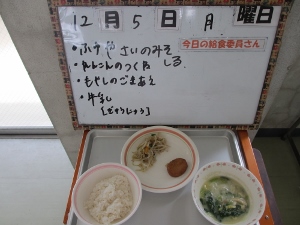 12月5日月曜日
今日の給食委員さん
・ふゆやさいのみそしる
・れんこんのつくね
・もやしのごまあえ
・牛乳
[ぎゅうにゅう]